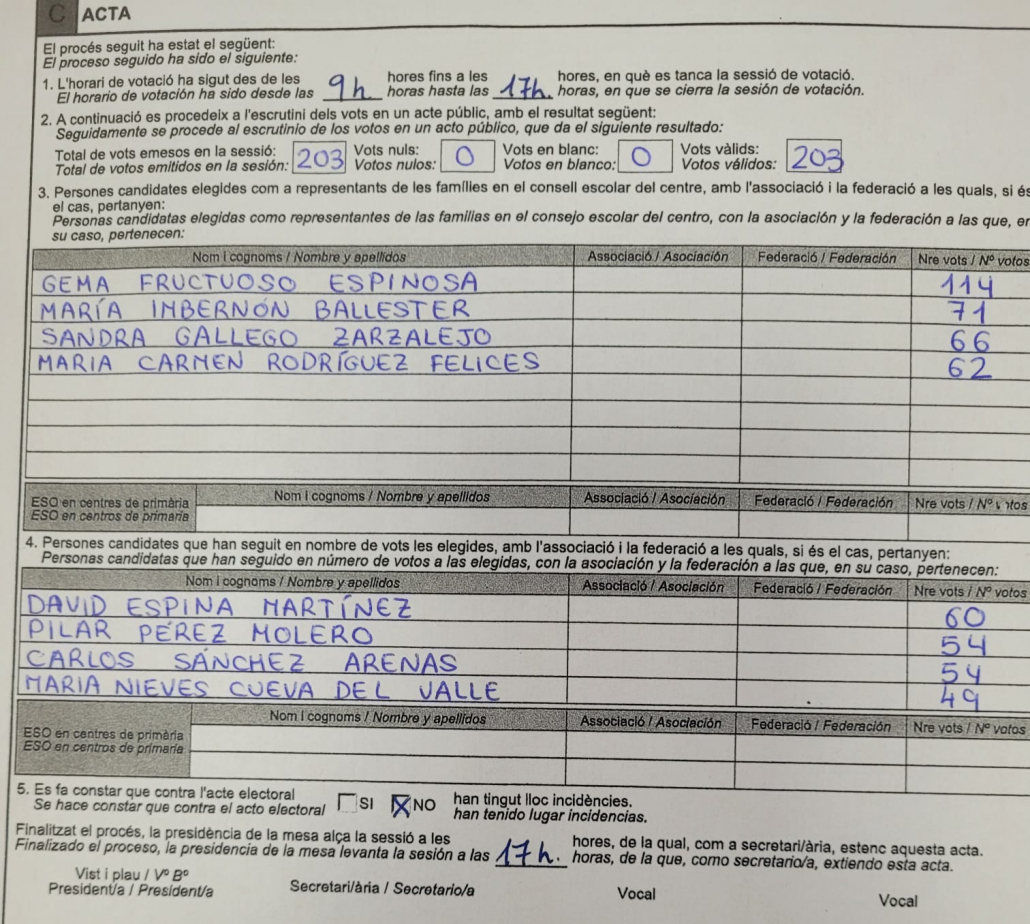 C ACTA
El procés seguit ha estat el següent:
El proceso seguido ha sido el siguiente:
1. L'horari de votació ha sigut des de les 9h hores fins a les 17h. hores, en què es tanca la sessió de votació.
El horario de votación ha sido desde las horas hasta las horas, en que se cierra la sesión de votación.
2. A continuació es procedeix a l'escrutini dels vots en un acte públic, amb el resultat següent:
Seguidamente se procede al escrutinio de los votos en un acto público, que da el siguiente resultado:
Total de vots emesos en la sessió: 203 Vots nuls: 0 Vots en blanc: 0 Vots vàlids: 203
Total de votos emitidos en la sesión: Votos nulos: Votos en blanco: Votos válidos:
3. Persones candidates elegides com a representants de les famílies en el consell escolar del centre, amb l'associació i la federació a les quals, si és
el cas, pertanyen:
Personas candidatas elegidas como representantes de las familias en el consejo escolar del centro, con la asociación y la federación a las que, en
su caso, pertenecen:
Nom i cognoms / Nombre y apellidos Associació / Asociación Federació / Federación Nre vots / Nº votos
GEMA FRUCTUOSO ESPINOSA 114
MARÍA IMBERNÓN BALLESTER 71
SANDRA GALLEGO ZARZALEJO 66
MARIA CARMEN RODRÍGUEZ FELICES 62
ESO en centres de primària Nom i cognoms / Nombre y apellidos Associació / Asociación Federació / Federación Nre vots / Nº votos
ESO en centros de primaria
4. Persones candidates que han seguit en nombre de vots les elegides, amb l'associació i la federació a les quals, si és el cas, pertanyen:
Personas candidatas que han seguido en número de votos a las elegidas, con la asociación y la federación a las que, en su caso, pertenecen:
Nom i cognoms / Nombre y apellidos Associació / Asociación Federació / Federación Nre vots / Nº votos
DAVID ESPINA MARTÍNEZ 60
PILAR PÉREZ MOLERO 54
CARLOS SÁNCHEZ ARENAS 54
MARIA NIEVES CUEVA DEL VALLE 49
Nom i cognoms / Nombre y apellidos Associació / Asociación Federació / Federación Nre vots / Nº votos
ESO en centres de primària
ESO en centros de primaria
5. Es fa constar que contra l'acte electoral SI X NO han tingut lloc incidències.
Se hace constar que contra el acto electoral han tenido lugar incidencias.
Finalitzat el procés, la presidència de la mesa alça la sessió a les 17h. hores, de la qual, com a secretari/ària, estenc aquesta acta.
Finalizado el proceso, la presidencia de la mesa levanta la sesión a las horas, de la que, como secretario/a, extiendo esta acta.
Vist i plau / Vº Bº
President/a / President/a Secretari/ària / Secretario/a Vocal Vocal